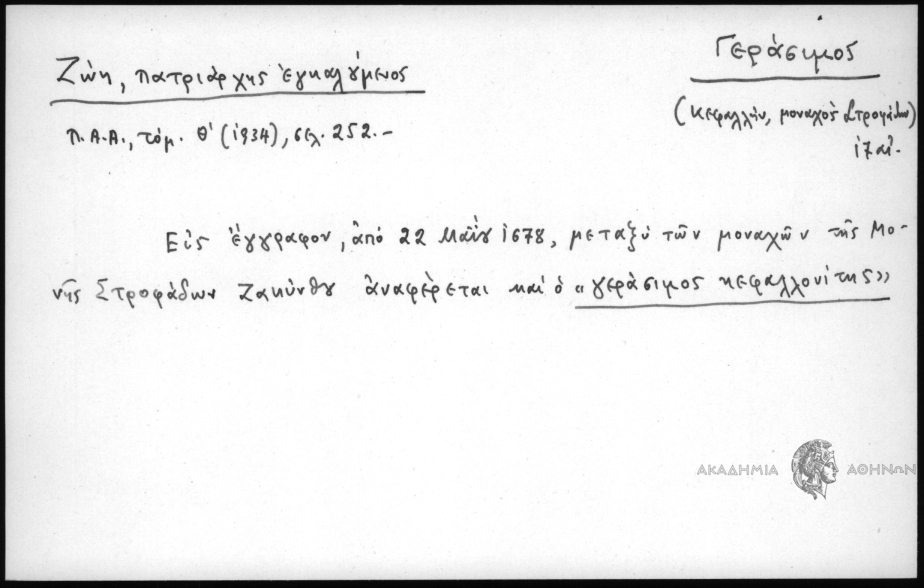 Ζώη, πατριάρχης ἐγκαλούμενος
Π.Α.Α., τόμ. Θ' (1934), σελ. 252.-
Γεράσιμος
(Κεφαλλήν, μοναχὸς Στροφάδων)
17 αἰ.
Εἰς ἔγγραφον, ἀπό 22 Μαΐου 1678, μεταξύ τῶν μοναχῶν τῆς Μο-
νῆς Στροφάδων Ζακύνθου ἀναφέρεται καὶ ὁ «γεράσιμος κεφαλλονίτης»
ΑΚΑΔΗΜΙΑ ΑΘΗΝΩΝ